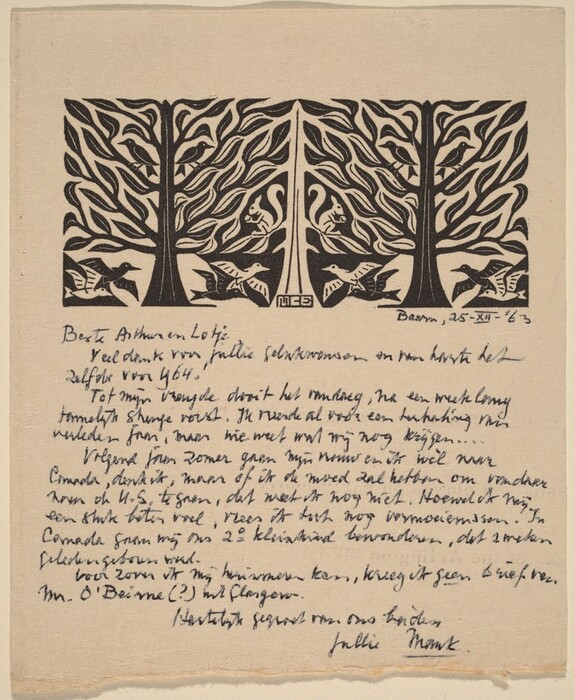 MCE
Baarn, 25-XII-'63
Beste Arthur en Lotje
Veel dank voor jullie gelukwensen en van harte het
zelfde voor 1964.
Tot mijn vreugde dooit het vandaag, na een week lang
tamelijk strenge vorst. Ik vreesde al voor een herhaling van
verleden jaar, maar wie weet wat wij nog krijgen....
Volgend jaar zomer gaan mijn vrouw en ik wel naar
Canada, denk ik, maar of ik de moed zal hebben om vandaar
naar de U.S. te gaan, dat weet ik nog niet. Hoewel ik mij
een stuk beter voel, vrees ik toch nog vermoeienissen. In
Canada gaan wij ons 2e kleinkind bewonderen, dat 2 weken
geleden geboren werd.
Voor zover ik mij herinneren kan, kreeg ik geen brief van
Mr. O'Beirne (?) uit Glasgow.
Hartelijk gegroet van ons beiden
jullie Mauk